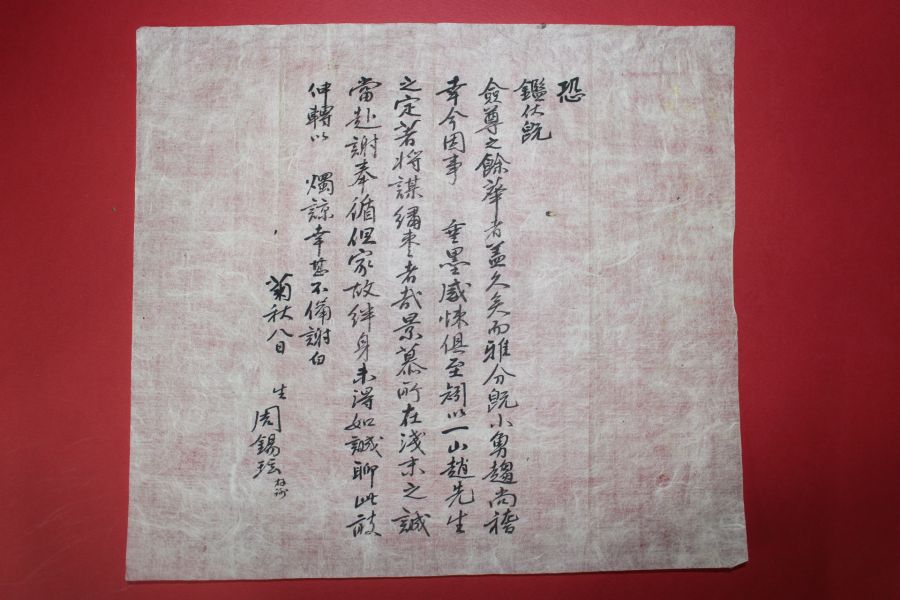 恐
鑑伏旣
僉尊之餘華者盖久矣而雅分旣小勇趨尚稽
幸今因事 垂墨感悚俱至矧以一山趙先生
之定著将謀繡枣者哉景慕所在淺末之誠
當赴謝奉循但家故絆身未得如誠聊此敲
仲轉以 燭諒幸甚不備謝白
菊秋八日 生 周錫